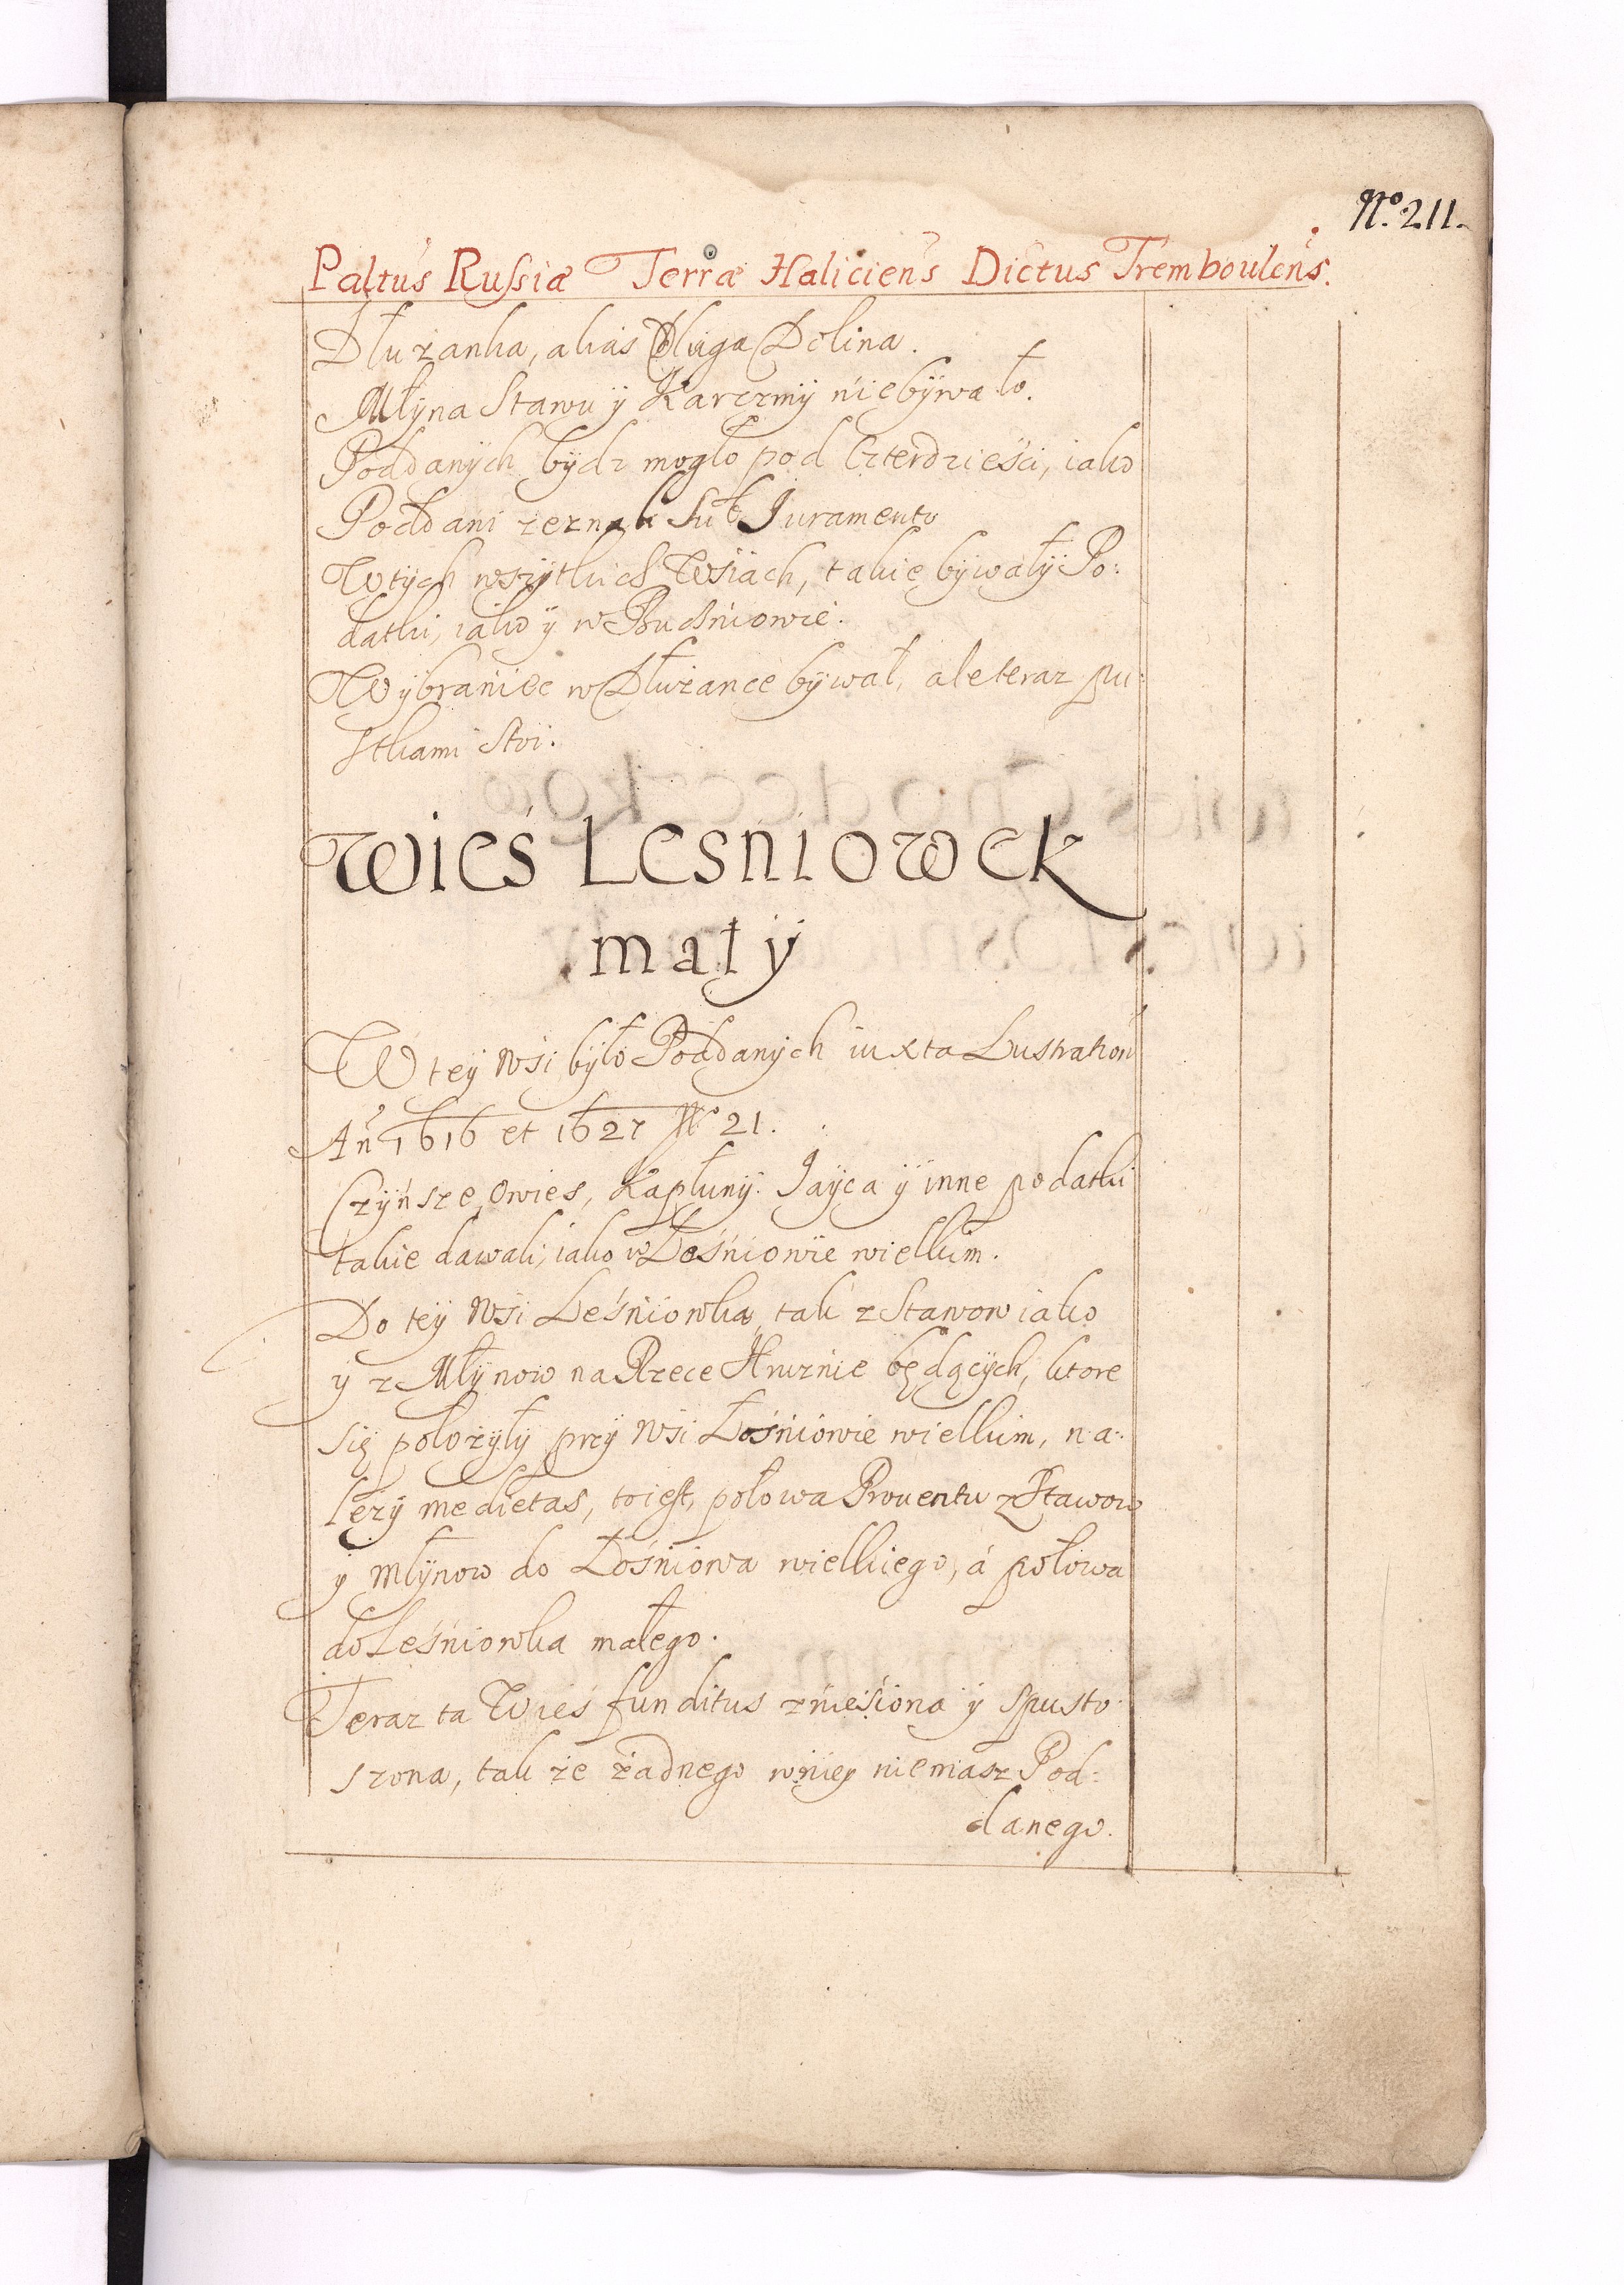 Nº 211.
Paltus Russiæ Terræ Haliciens Dictus Tremboulens.
Dłużanka, alias Długa Dolina.
Młÿna Stawu ÿ Karczmÿ niebÿwało.
Poddanÿch bÿdz mogło pod Czterdzieśći, iako
Poddani zeznali Sub Juramento
W tÿch wszÿtkich Wsiach, takie bÿwałÿ Po:
datki, iako ÿ w Budśniowie.
Wÿbraniec w Dłużance bÿwał, ale teraz pu:
stkami Stoi.
Wieś Leśniowek
małÿ
W teÿ Wsi bÿło Poddanÿch iuxta Lustration
Añ 1616 et 1627 Nº 21.
Czÿńsze, Owies, Kapłunÿ. Jaÿca ÿ inne podatki
takie dawali, iako w Łośniowie wielkim.
Do teÿ Wsi Leśniowka, tak z Stawow iako
ÿ z Młÿnow na Rzece Hnÿznie będącÿch, ktore
się położÿłÿ przÿ Wsi Łośniowie wielkim, na:
leżÿ medietas, toiest, połowa Prouentu z Stawow
ÿ Młÿnow do Łośniowa wielkiego, á połowa
do Leśniowka małego.
Teraz ta Wieś funditus zniesiona ÿ Spusto
szona, tak że żadnego wnieÿ niemasz Pod:
danego.